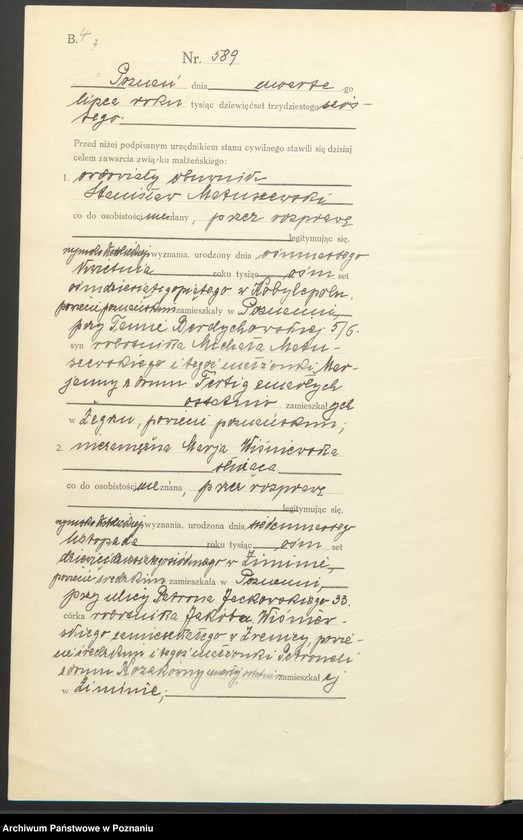 B.4
Nr. 589
Poznań dnia czwartego
lipca roku tysiąc dziewięćset trzydziestego szós-
tego.
Przed niżej podpisanym urzędnikiem stanu cywilnego stawili się dzisiaj
celem zawarcia związku małżeńskiego:
1. owdowiały obuwnik
Stanisław Matuszewski
co do osobistości nieznany, przez rozprawę
legitymując się,
rzymsko katolickiej wyznania, urodzony dnia ósmnastego
kwietnia roku tysiąc ośm set
ośmdziesiątego piątego w Kobylepolu,
powiecie poznańskim zamieszkały w Poznaniu,
przy Tamie Berdychowskiej 5/6.
syn robotnika Michała Matu-
szewskiego i tegoż małżonki Mar-
janny z domu Fertig zmarłych
ostatnio zamieszkałych
w Żegrzu, powiecie poznańskim;
2. niezamężna Marja Wiśniewska
służąca
co do osobistości nieznana, przez rozprawę
legitymując się,
rzymsko katolickiej wyznania, urodzona dnia siódemnastego
listopada roku tysiąc ośm set
dziewięćdziesiątego siódmego w Ziminie,
powiecie średzkim zamieszkała w Poznaniu,
przy ulicy Patrona Jackowskiego 33.
córka robotnika Jakóba Wiśniew-
skiego zamieszkałego w powie-
cie średzkim i tegoż małżonki Petroneli
z domu zmarłej, ostatnio zamieszkałej
w Ziminie;
Archiwum Państwowe w Poznaniu